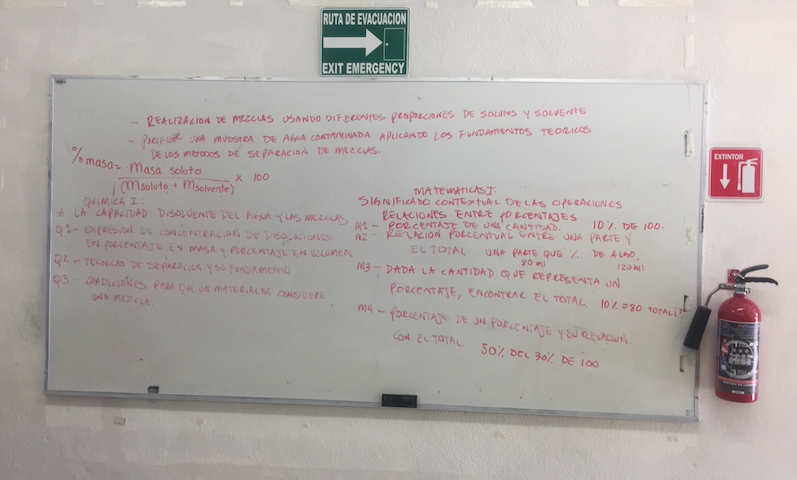 RUTA DE EVACUACION
EXIT EMERGENCY
- REALIZACION DE MEZCLAS USANDO DIFERENTES PROPORCIONES DE SOLUTOS Y SOLVENTE
- PURIFICAR UNA MUESTRA DE AGUA CONTAMINADA APLICANDO LOS FUNDAMENTOS TEORICOS
DE LOS METODOS DE SEPARACION DE MEZCLAS.
% masa = Masa soluto x 100
(Msoluto + Msolvente)
QUIMICA I:
* LA CAPACIDAD DISOLVENTE DEL AGUA Y LAS MEZCLAS
Q1- EXPRESION DE CONCENTRACION DE DISOLUCIONES
EN PORCENTAJE EN MASA Y PORCENTAJE EN VOLUMEN
Q2- TECNICAS DE SEPARACION Y SU FUNDAMENTO
Q3- CONDICIONES PARA QUE UN MATERIAL SE CONSIDERE
UNA MEZCLA.
MATEMATICAS I:
SIGNIFICADO CONTEXTUAL DE LAS OPERACIONES
RELACIONES ENTRE PORCENTAJES
M1- PORCENTAJE DE UNA CANTIDAD. 10% DE 100.
M2- RELACION PORCENTUAL ENTRE UNA PARTE Y
EL TOTAL UNA PARTE QUE % DE ALGO.
80 ml 120 ml
M3- DADA LA CANTIDAD QUE REPRESENTA UN
PORCENTAJE, ENCONTRAR EL TOTAL 10% = 80 TOTAL?
M4- PORCENTAJE DE UN PORCENTAJE Y SU RELACION
CON EL TOTAL 50% DEL 30% DE 100
EXTINTOR